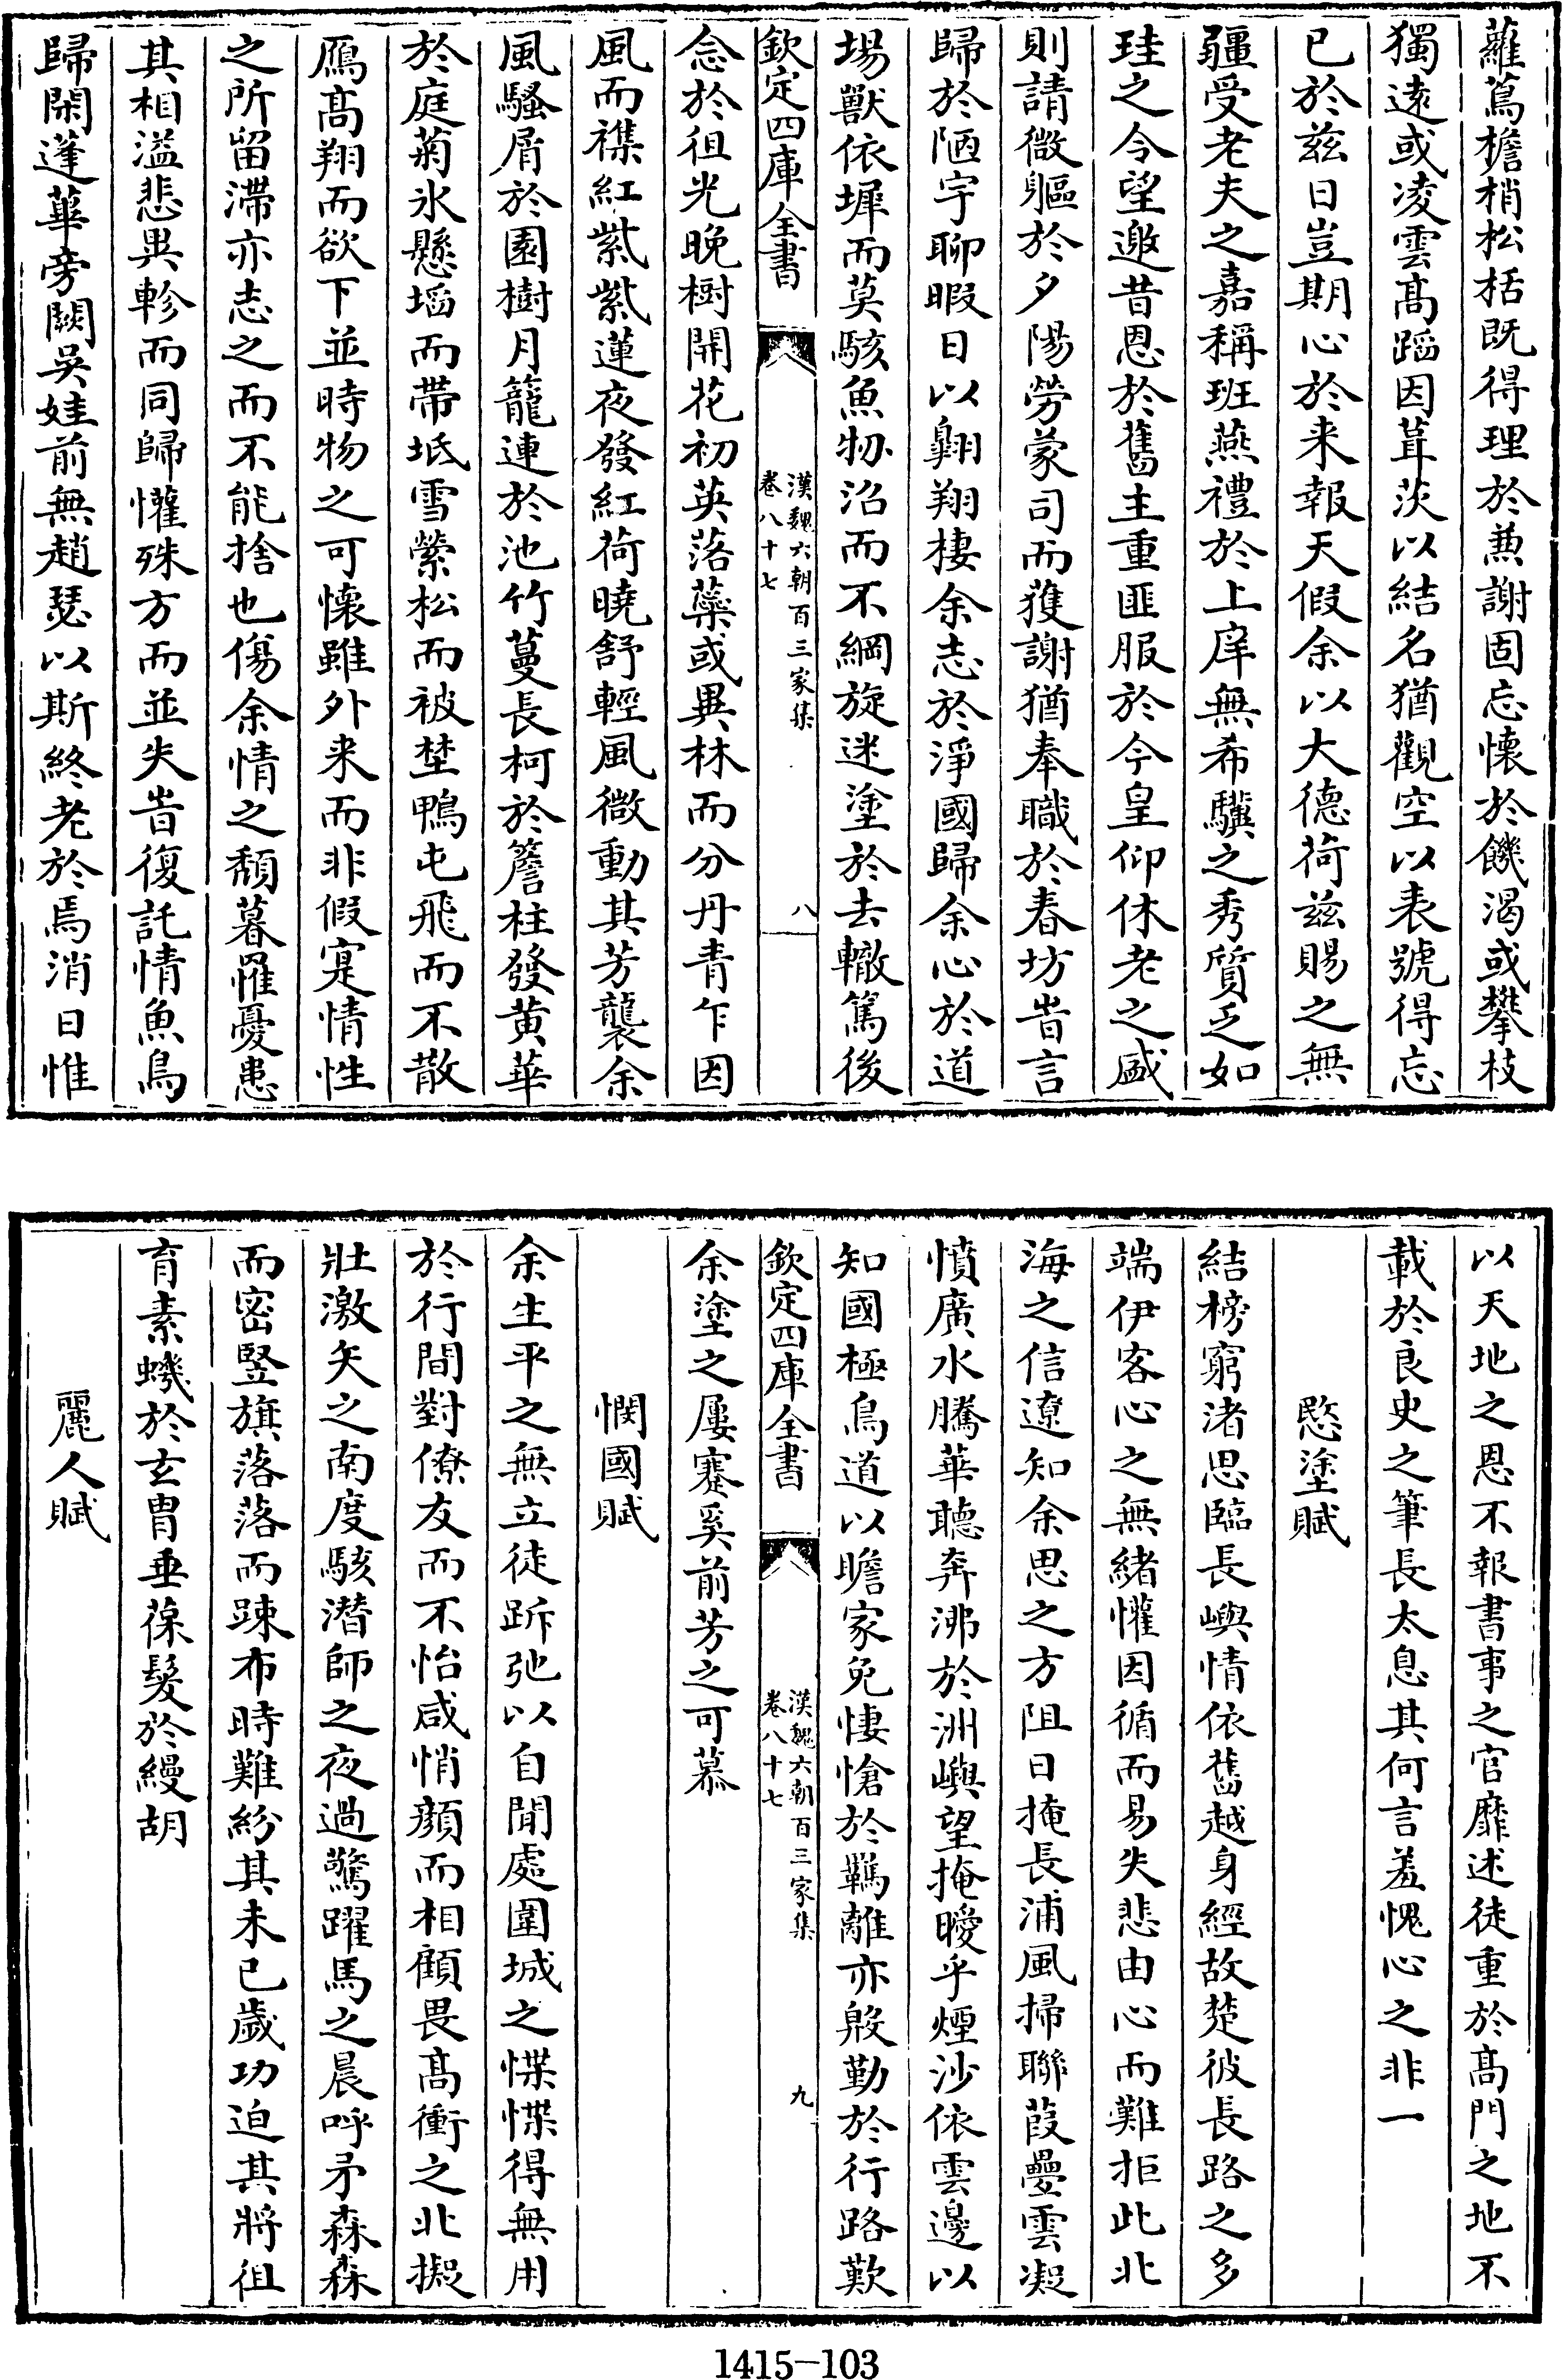 蘿蔦檐梢松栝既得理於兼謝固忘懷於饑渴或攀枝
獨遠或凌雲髙蹈因葺茨以結名猶觀空以表號得忘
已於兹日豈期心於来報天假余以大德荷兹賜之無
疆受老夫之嘉稱班燕禮於上庠無希驥之秀質乏如
珪之令望邀昔恩於舊主重匪服於今皇仰休老之盛
則請微軀於夕陽勞䝉司而獲謝猶奉職於春坊旹言
歸於陋宇聊暇日以翺翔棲余志於淨國歸余心於道
場獸依墀而莫駭魚牣沼而不綱旋迷塗於去轍篤後
欽定四庫全書
漢魏六朝百三家集
卷八十七
八
念於徂光晚樹開花初英落蘂或異林而分丹青乍因
風而襍紅紫紫蓮夜發紅荷曉舒輕風微動其芳襲余
風騷屑於園樹月籠連於池竹蔓長柯於簷柱發黄華
於庭菊氷懸埳而帶坻雪縈松而被埜鴨屯飛而不散
鴈髙翔而欲下並時物之可懷雖外来而非假寔情性
之所留滯亦志之而不能捨也傷余情之頽暮罹憂患
其相溢悲異軫而同歸懽殊方而並失旹復託情魚鳥
歸閑蓬蓽旁闕吳娃前無趙瑟以斯終老於焉消日惟
以天地之恩不報書事之官靡述徒重於髙門之地不
載於良史之筆長太息其何言羞愧心之非一
愍塗賦
結榜窮渚思臨長嶼情依舊越身經故楚彼長路之多
端伊客心之無緒懽因循而易失悲由心而難拒此北
海之信遼知余思之方阻日掩長浦風掃聯葭疊雲凝
憤廣水騰華聽奔沸於洲嶼望掩曖乎煙沙依雲邊以
知國極鳥道以瞻家免悽愴於羈離亦殷勤於行路歎
欽定四庫全書
漢魏六朝百三家集
卷八十七
九
余塗之屢蹇奚前芳之可慕
憫國賦
余生平之無立徒跅弛以自閒處圍城之惵惵得無用
於行間對僚友而不怡咸悄顔而相顧畏髙衝之北擬
壯激矢之南度駭潛師之夜過驚躍馬之晨呼矛森森
而密竪旗落落而踈布時難紛其未已歲功迫其將徂
育素蟣於玄胄垂葆髮於縵胡
麗人賦
1415—103